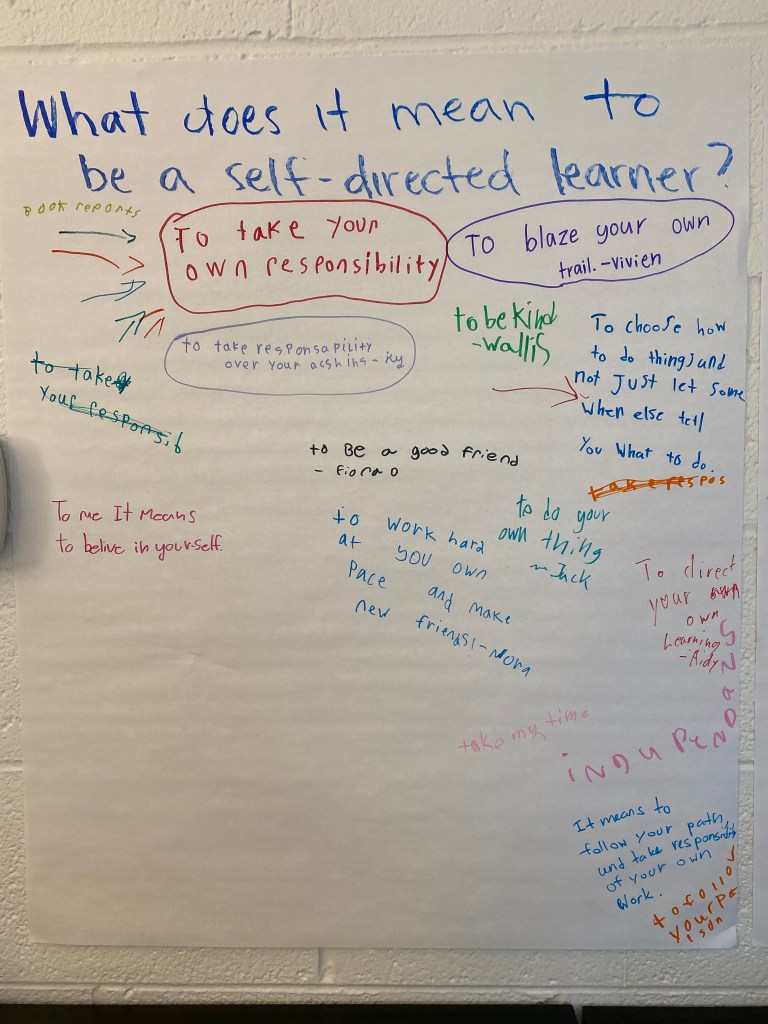 What does it mean to
be a self-directed learner?
Book reports
To take your
own responsibility
To blaze your own
trail. -Vivien
to be kind
-Wallis
to take responsapility
over your acshins - ivy
To choose how
to do things and
not Just let some
when else tell
You What to do.
to take
your responsib
take respos
to Be a good friend
- Fiona O
To me It Means
to belive in your-self.
to do your
own thing
- Jack
to work hard
at you own
Pace and make
new friends! -Nora
To direct
your own
own
Learning
-Aidy
take my time
indupendans
It means to
follow your path,
and take responsibility
of your own
Work.
to follo
your pa